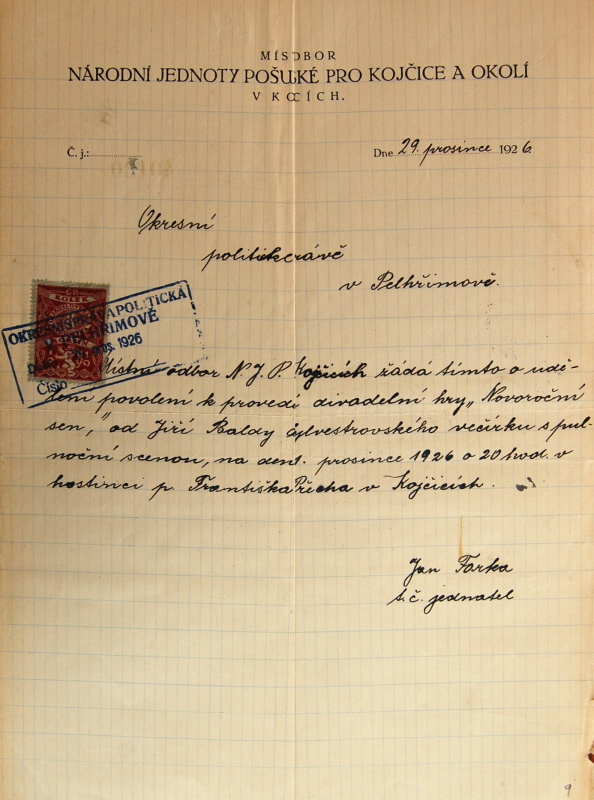 MÍSDBOR
NÁRODNÍ JEDNOTY POŠUKÉ PRO KOJČICE A OKOLÍ
V KOCÍCH.
Č. j.:
Dne 29. prosince 1926
Okresní
v Pelhřimově.
KOLEK
V PELHŘIMOVĚ
1926
Číslo
Místní odbor N. J. P. Kojčicích žádá tímto o udě-
lení povolení k provedí divadelní hry „Novoroční
sen," od Jiří Baldy Sylvestrovského večírku s pul-
noční scenou, na den . prosince 1926 o 20 hod. v
hostinci p. Františka Přecha v Kojčicích.
Jan Farka
t. č. jednatel
9